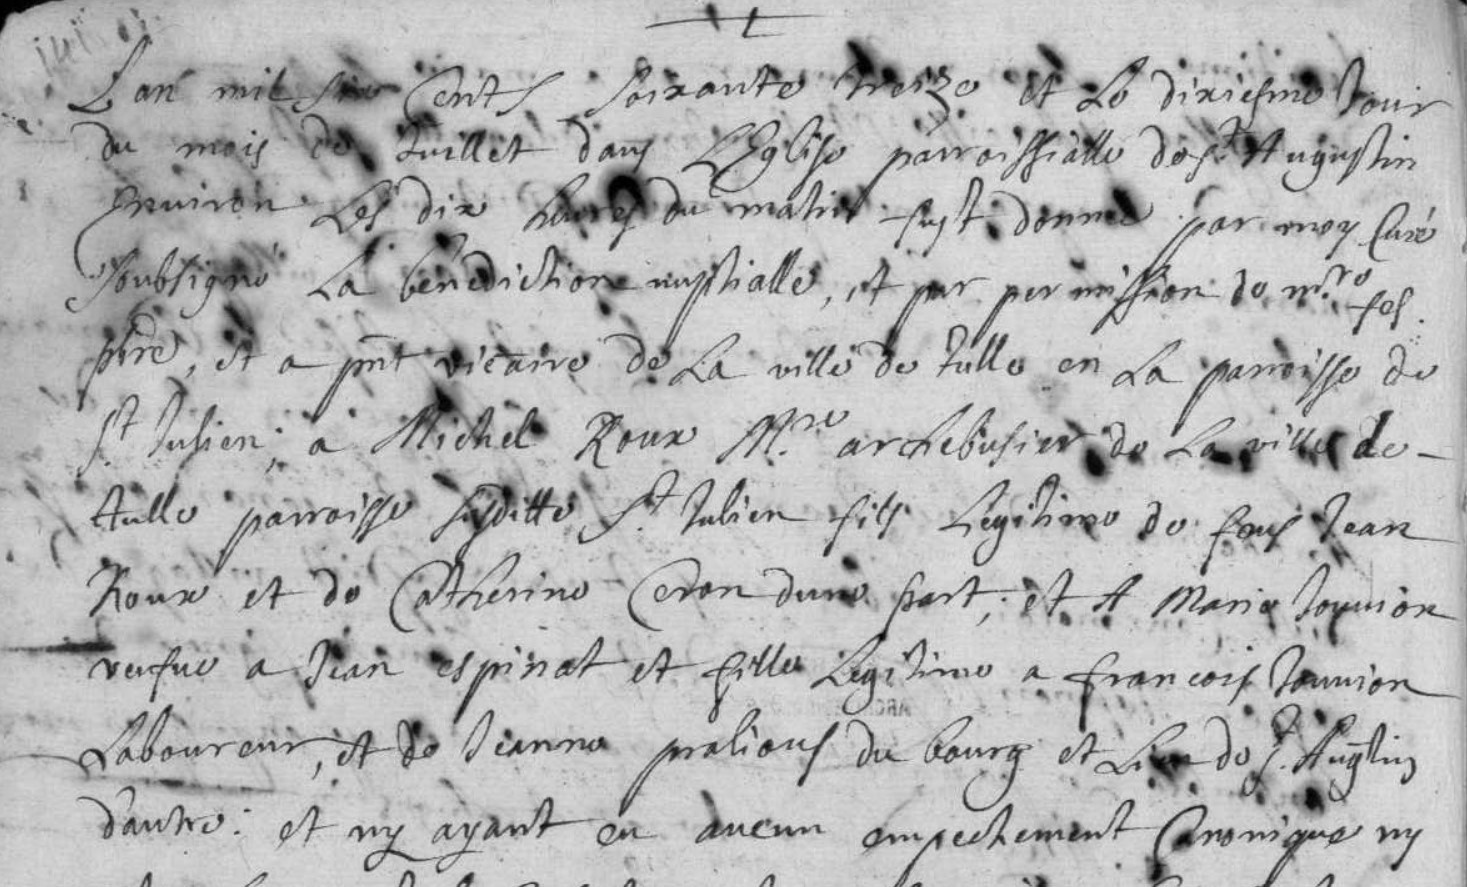 Lan mil six Cents soixante treize et Le dixiesme Jour
du mois de Juillet dans LEglise parroissialle de st Augustin
Environ Les dix heures du matin fust donnee par moy Curé
soubsigné La bénédiction nuptialle, et par permission de mre
pbre, et a pnt vicaire de La ville de tulle en La parroisse de
st Julien, a Michel Roux Mre archebusier de La ville de
tulle parroisse susditte st Julien fils Legitime de feus Jean
Roux et de Catherine Ceron dune part, et A Marie Jouvion
veufve a Jean espinat et fille Legitime a francois Jouvion
Laboureur, et de Jeanne pralious du bourg et Lieu de st Augtin
d'autre: et ny ayant eu aucun empechement Canonique ny